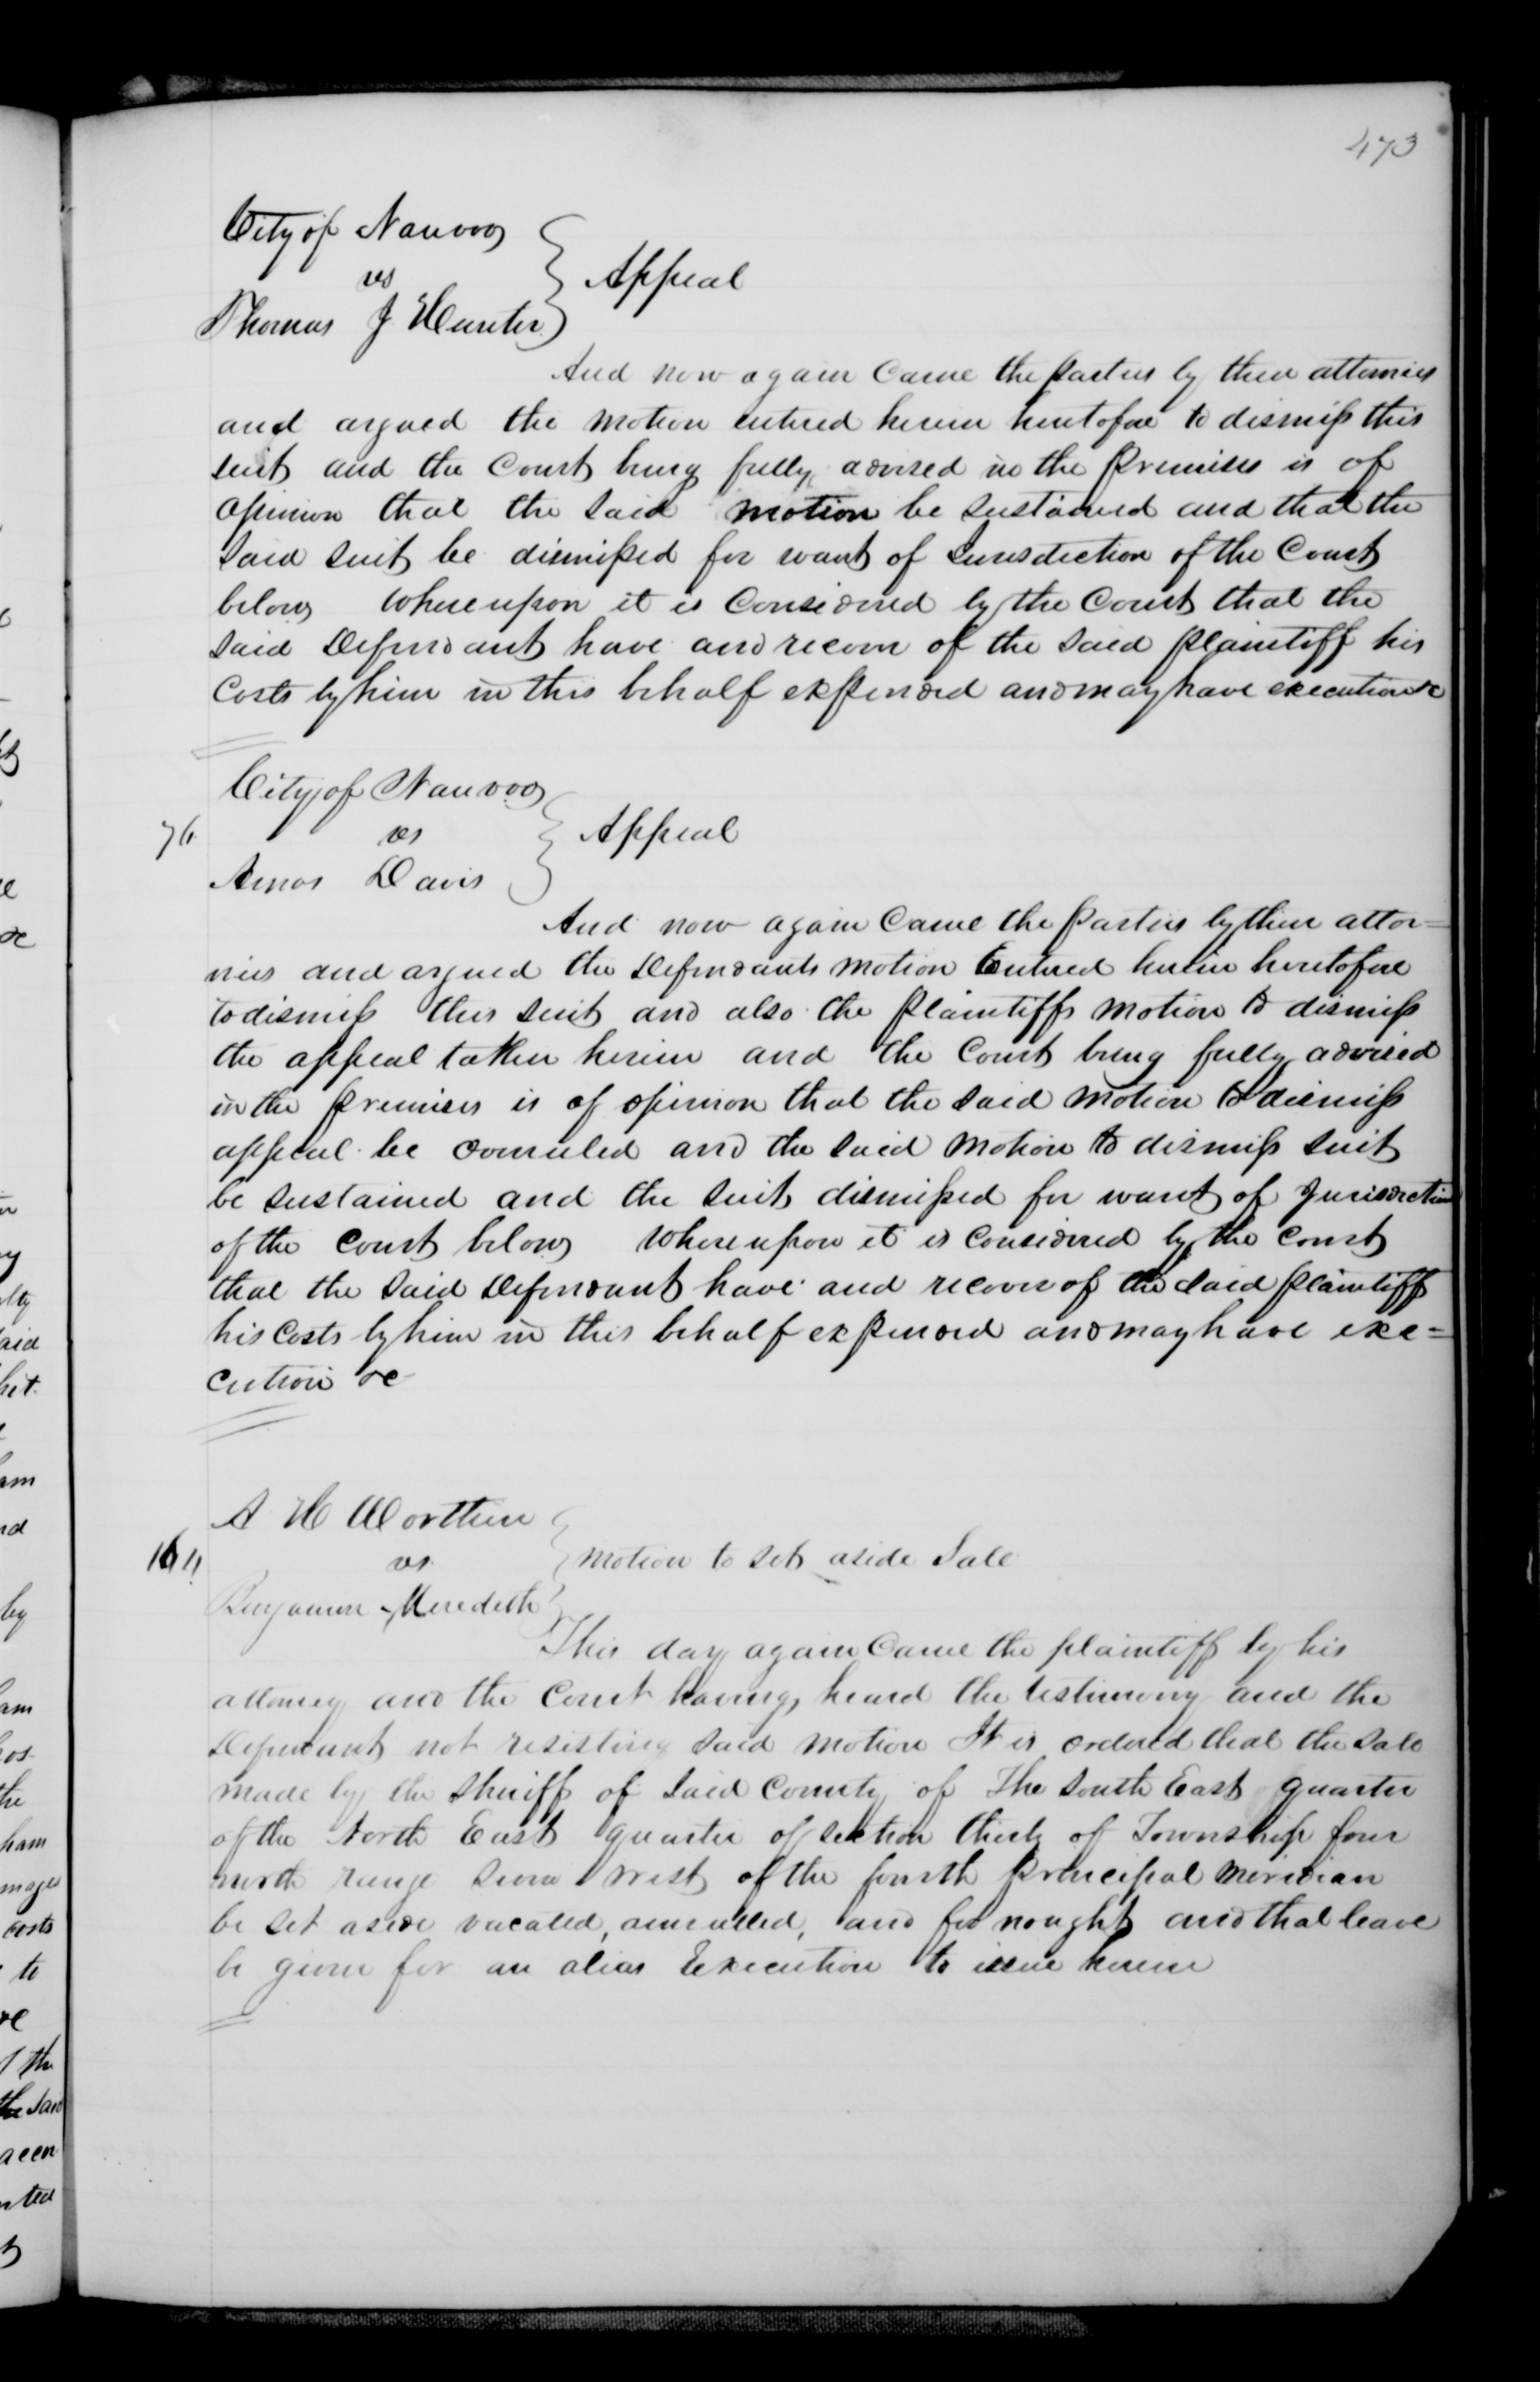 473
City of Nauvoo
vs } Appeal
Thomas J Hunter
And now again Came the parties by their attornies
and argued the motion entered herein heretofore to dismiss this
suit and the Court being fully advised in the premises is of
opinion that the said motion be sustained and that the
said suit be dismissed for want of Jurisdiction of the Court
below Whereupon it is Considered by the Court that the
said Defendant have and recover of the said plaintiff his
Costs by him in this behalf expended and may have execution &c
City of Nauvoo
76 vs } Appeal
Amos Davis
And now again Came the parties by their attor=
nies and argued the Defendants motion Entered herein heretofore
to dismiss this suit and also the plaintiffs motion to dismiss
the appeal taken herein and the Court being fully advised
in the premises is of opinion that the said motion to dismiss
appeal be overruled and the said motion to dismiss suit
be sustained and the suit dismissed for want of Jurisdiction
of the Court below Whereupon it is Considered by the Court
that the said Defendant have and recover of the said plaintiff
his Costs by him in this behalf expended and may have exe=
cution &c
A H Worthen
vs } Motion to set aside Sale
Benjamin Meredith
This day again Came the plaintiff by his
attorney and the Court having heard the testimony and the
Defendant not resisting said motion It is ordered that the sale
made by the Sheriff of said County of The South East quarter
of the North East quarter of section thirty of Township four
north range seven west of the fourth principal meridian
be set aside vacated, annulled, and for nought and that leave
be given for an alias Execution to issue herein